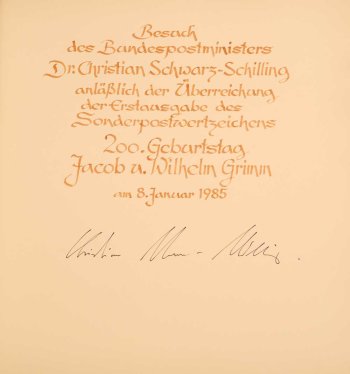 Besuch
des Bundespostministers
Dr. Christian Schwarz-Schilling
anläßlich der Überreichung
der Erstausgabe des
Sonderpostwertzeichens
200. Geburtstag
Jacob u. Wilhelm Grimm
am 8. Januar 1985
Christian Schwarz-Schilling